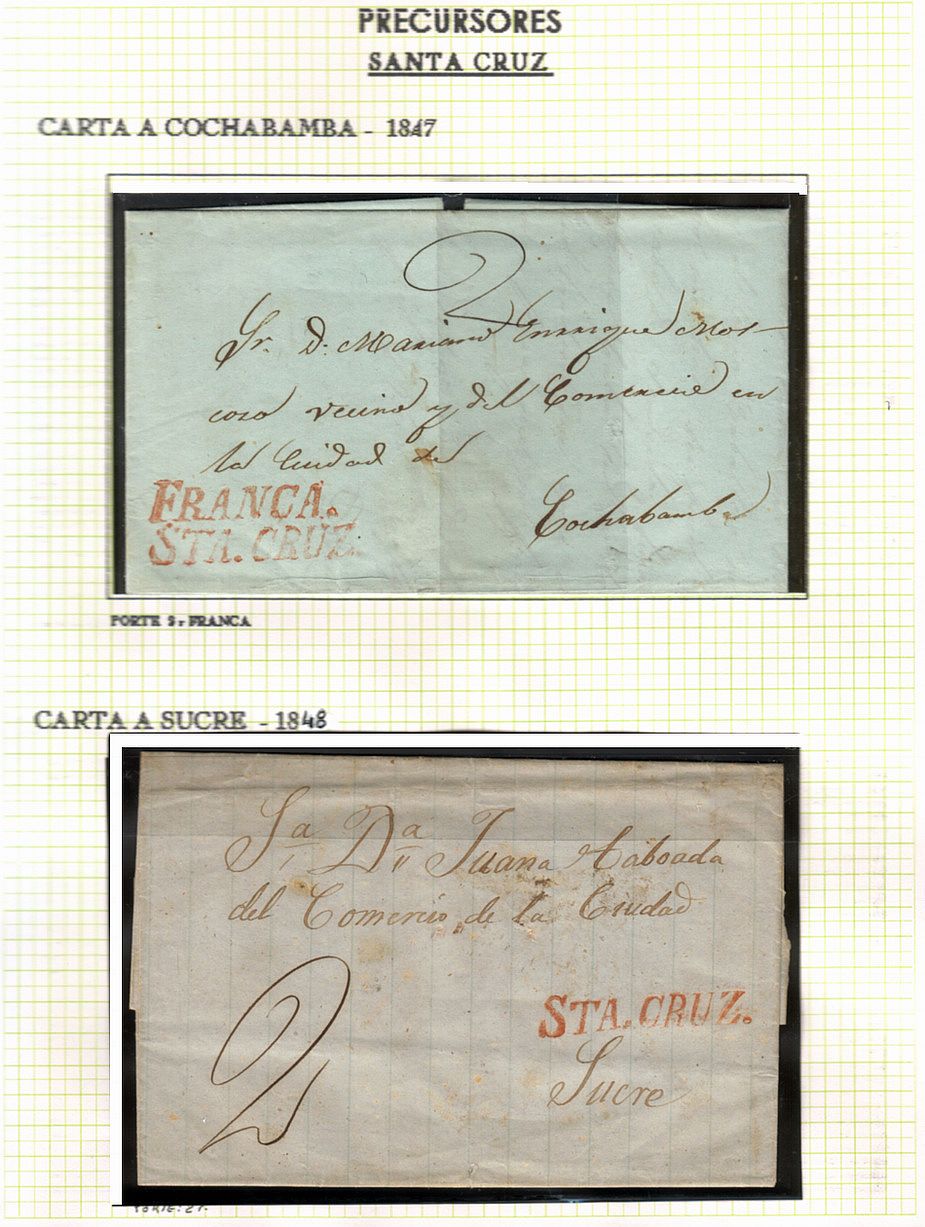 PRECURSORES
SANTA CRUZ
CARTA A COCHABAMBA - 1847
2
Sr. D. Mariano Enrrique Mos-
coso vecino y del Comercio en
la Ciudad de
FRANCA.
STA. CRUZ.
Cochabamba
PORTE 2r FRANCA
CARTA A SUCRE - 1848
Sa Da Juana Taboada
del Comercio de la Ciudad
2
STA. CRUZ.
Sucre
PORTE: 2r.